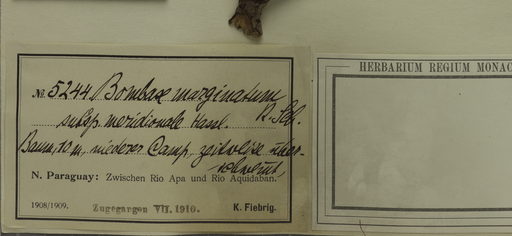 No. 5244 Bombax marginatum
K. Sch.
subsp. meridionale Hassl.
Baum, 10 m, niederer Camp, zeitweise über-
schwemmt,
N. Paraguay: Zwischen Rio Apa und Rio Aquidaban.
1908/1909.
Zugegangen VII. 1910.
K. Fiebrig.
HERBARIUM REGIUM MONAC